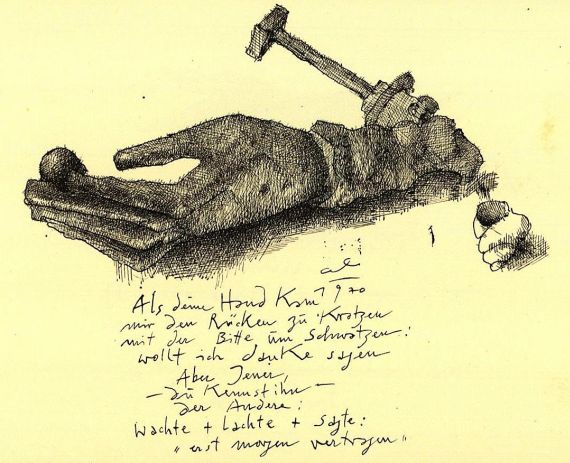 1970
Als deine Hand Kam
mir den Rücken zu Kratzen
mit der Bitte um Schwatzen:
wollt ich danke sagen
Aber Jener,
— du Kennst ihn —
der Andere:
wachte + lachte + sagte:
"erst morgen vertragen"